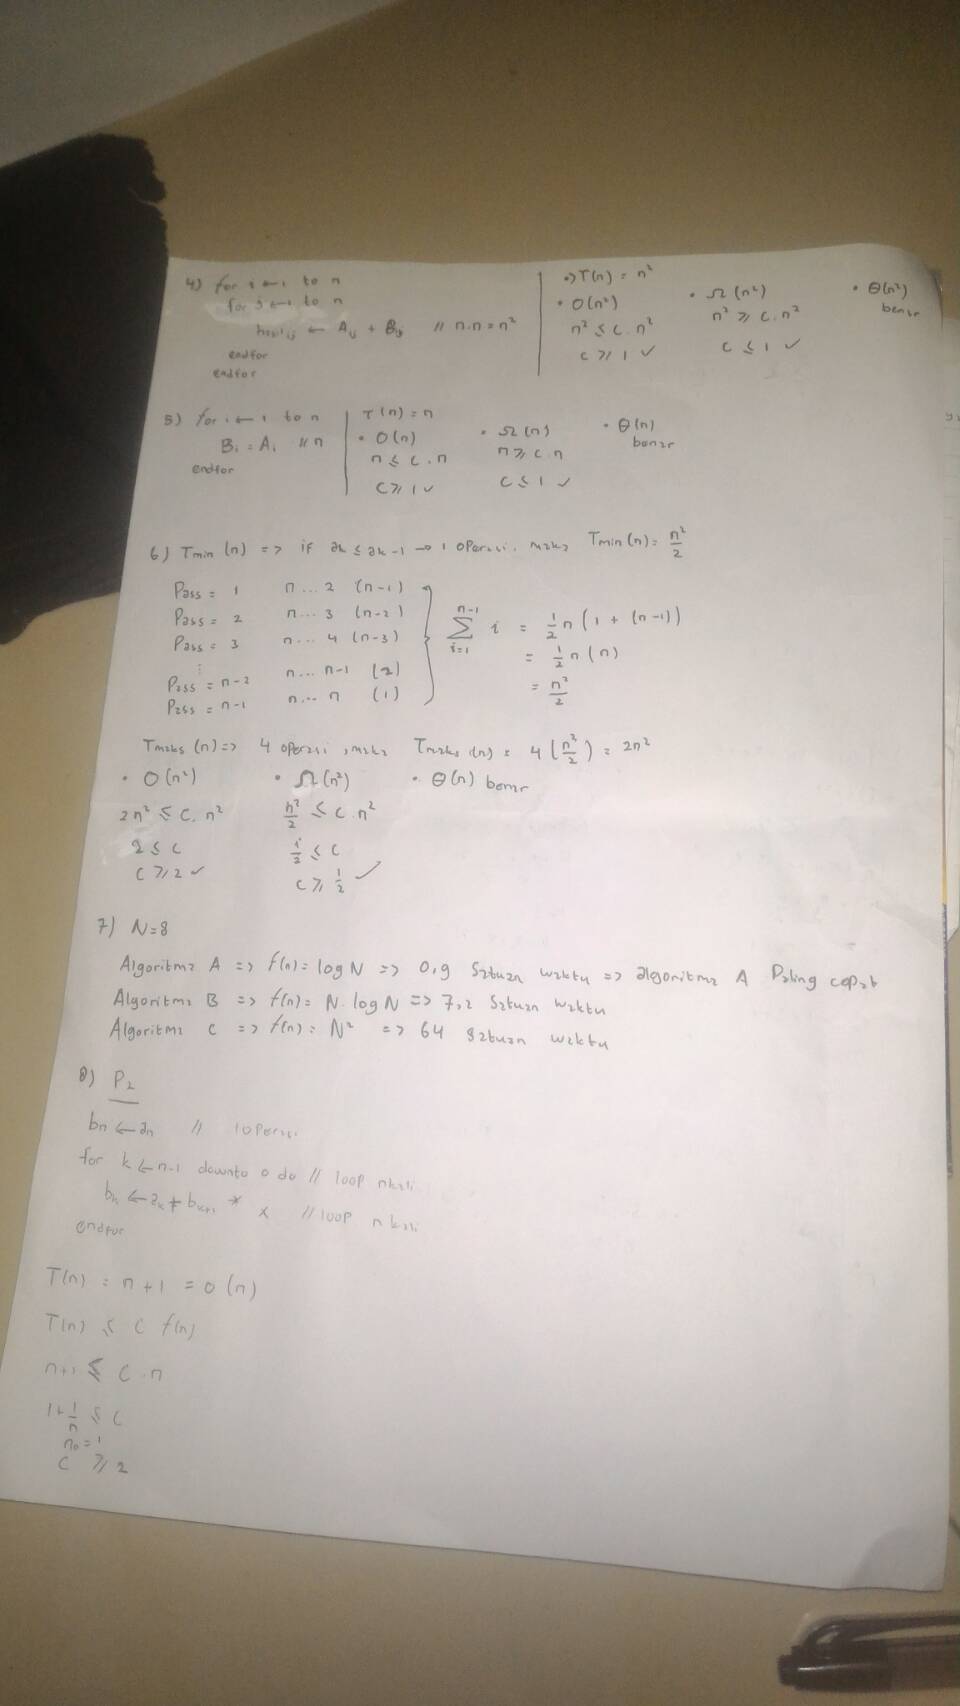 4) for i ← 1 to n
for j ← 1 to n
hasil ij ← Aij + Bij // n.n = n²
endfor
endfor
•> T(n) = n²
• O(n²)
n² ≤ c. n²
c ≥ 1 ✓
• Ω (n²)
n² ≥ c. n²
c ≤ 1 ✓
• Θ(n²)
benar
5) for i ← 1 to n
Bi = Ai // n
endfor
T(n) = n
• O(n)
n ≤ c. n
c ≥ 1 ✓
• Ω(n)
n ≥ c n
c ≤ 1 ✓
• Θ(n)
benar
6) Tmin (n) => if ak ≤ ak-1 → 1 operasi, maka Tmin(n) = n²/2
Pass = 1 n ... 2 (n-1)
Pass = 2 n ... 3 (n-2)
Pass = 3 n ... 4 (n-3)
⋮
Pass = n-2 n ... n-1 (2)
Pass = n-1 n ... n (1)
n-1 ∑ i=1 i = 1/2 n (1 + (n-1))
= 1/2 n (n)
= n²/2
Tmaks (n) => 4 operasi, maka Tmaks (n) = 4 (n²/2) = 2n²
• O(n²)
2n² ≤ c. n²
2 ≤ c
c ≥ 2 ✓
• Ω(n²)
n²/2 ≤ c. n²
1/2 ≤ c
c ≥ 1/2 ✓
• Θ(n) benar
7) N=8
Algoritma A => f(n) = log N => 0,9 Satuan waktu => algoritma A Paling cepat
Algoritma B => f(n) = N. log N => 7,2 Satuan waktu
Algoritma C => f(n) = N² => 64 Satuan waktu
8) P2
bn ← an // 1 operasi
for k ← n-1 downto 0 do // loop n kali
bk ← ak + bk+1 * x // loop n kali
endfor
T(n) = n + 1 = O (n)
T(n) ≤ c f(n)
n+1 ≤ c . n
1 + 1/n ≤ c
n0 = 1
c ≥ 2